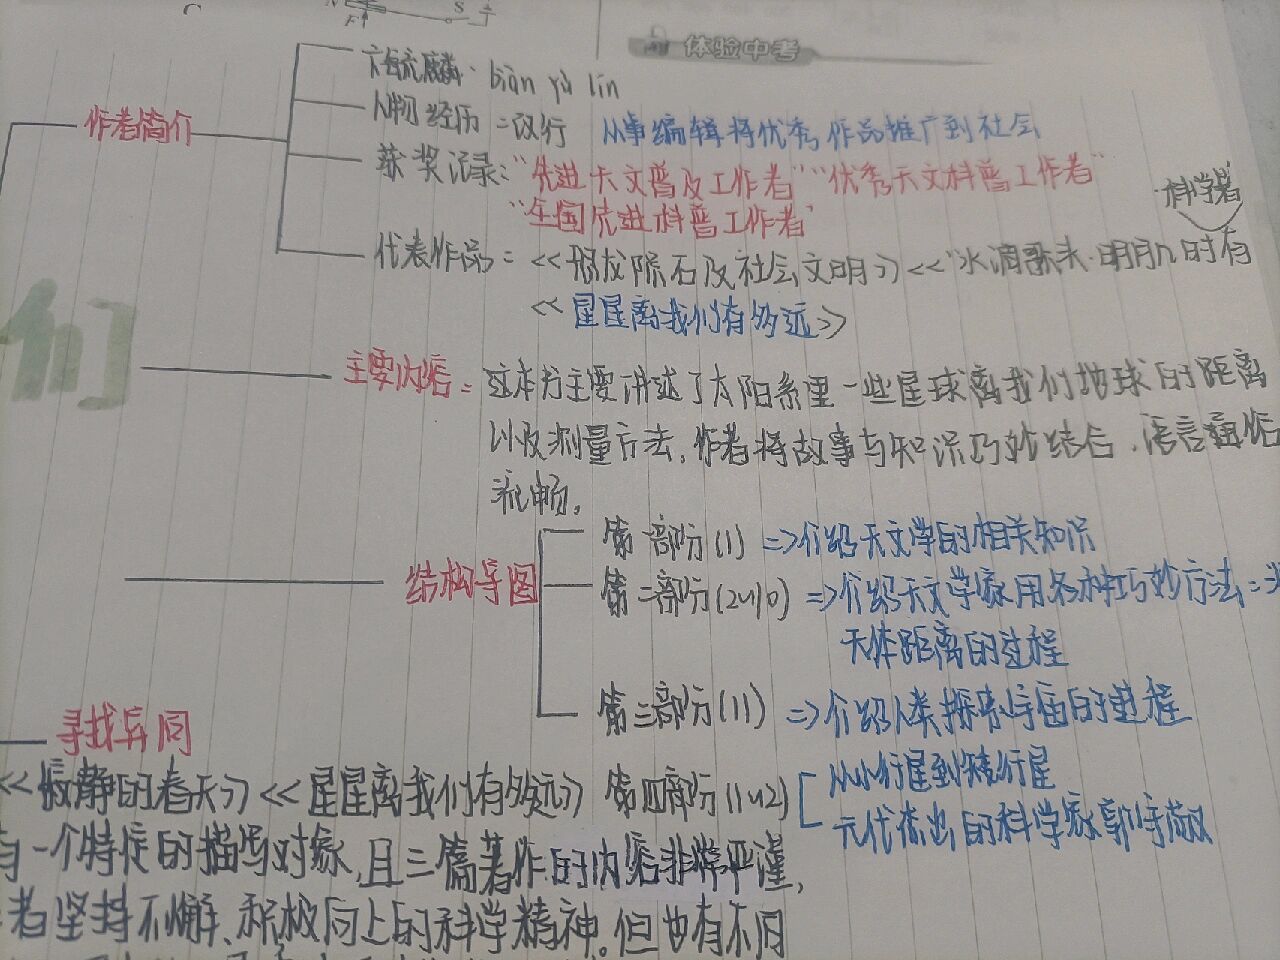 C
F
S
体验中考
卞毓麟. biàn yù lín
作者简介
人物经历=改行 从事编辑将优秀作品推广到社会
获奖记录:"先进天文普及工作者""优秀天文科普工作者"
"全国先进科普工作者"
科学着
代表作品=<<陨石及社会文明>><<"水调歌头·明月几时有
<<星星离我们有多远>>
们
主要内容=这本书主要讲述了太阳系里一些星球离我们地球的距离
以及测量方法,作者将故事与知识巧妙结合,语言通俗
流畅。
结构导图
第一部分(1) =>介绍天文学的相关知识
第二部分(2~10) =>介绍天文学家用各种巧妙方法=
天体距离的过程
第三部分(11) =>介绍人类探索宇宙的进程
寻找异同
<<寂静的春天>><<星星离我们有多远>> 第四部分(12)
从小行星到矮行星
元代杰出的科学家郭守敬
有一个特定的描写对象,且三篇著作的内容非常严谨,
者坚持不懈、积极向上的科学精神。但也有不同